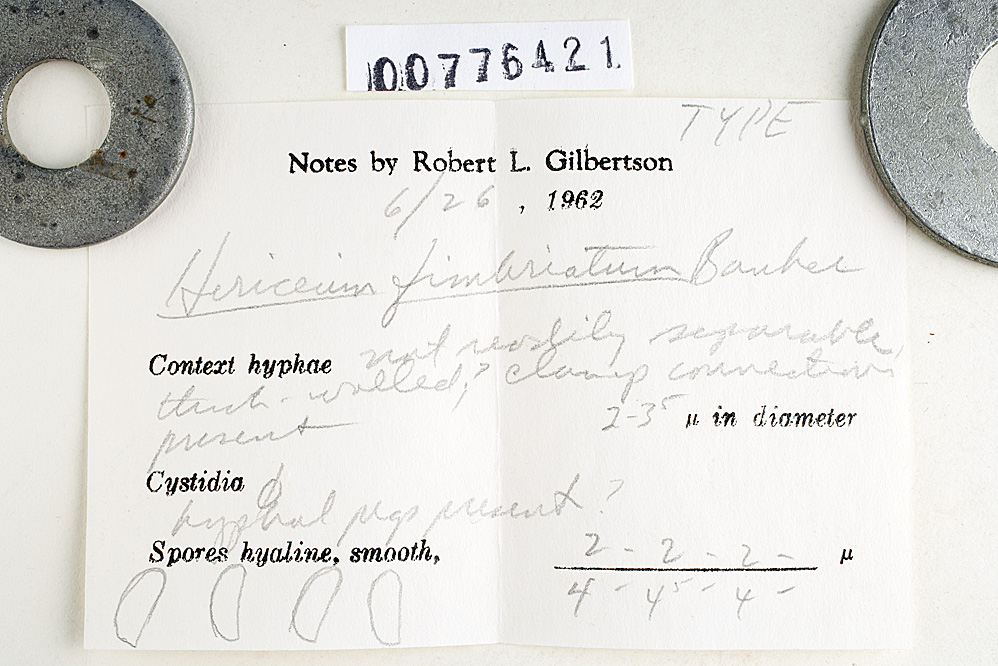 00776421
TYPE
Notes by Robert L. Gilbertson
6/26, 1962
Hericeum fimbriatum Banker
Context hyphae not readily separable,
thick-walled, ? clamp connections
present 2-3⁵ μ in diameter
Cystidia ϕ
hyphal pegs present?
Spores hyaline, smooth, 2 - 2 - 2 - μ
4 - 4⁵ - 4 -